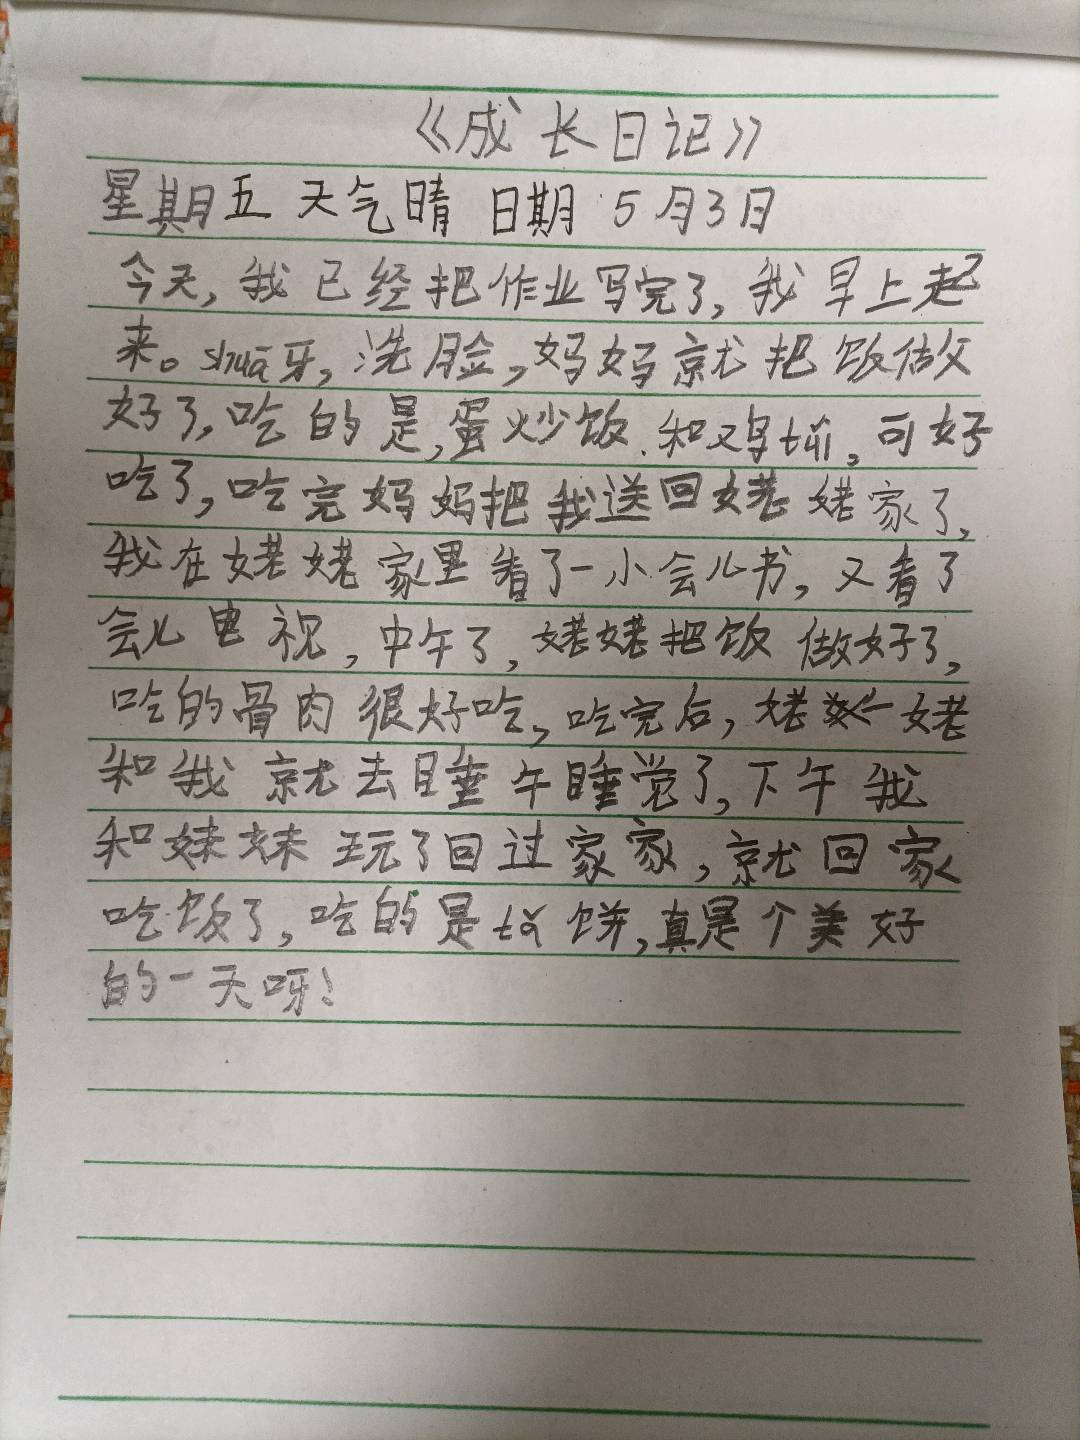 《成长日记》
星期五 天气晴 日期 5月3日
今天,我已经把作业写完了,我早上起
来。shuā牙,洗脸,妈妈就把饭做
好了,吃的是,蛋炒饭.和鸡tuǐ,可好
吃了,吃完妈妈把我送回姥姥家了,
我在姥姥家里看了一小会儿书,又看了
会儿电视,中午了,姥姥把饭做好了,
吃的骨肉很好吃,吃完后,姥姥
和我就去睡午睡觉了,下午我
和妹妹玩了回过家家,就回家
吃饭了,吃的是 饼,真是个美好
的一天呀!